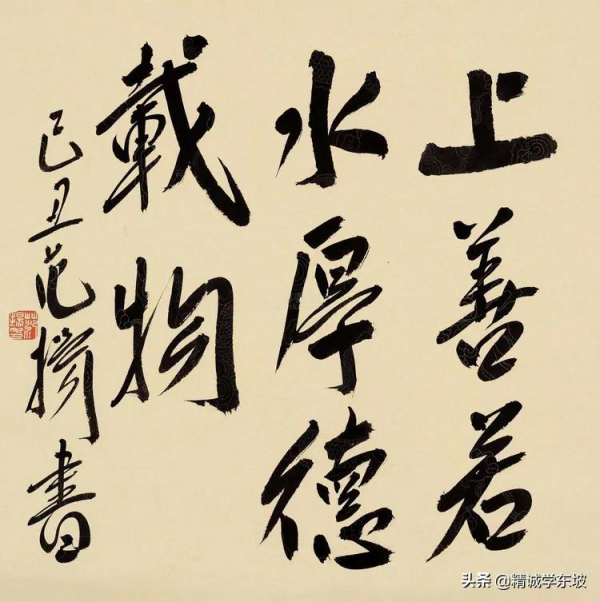 上善若
水厚德
載物
己丑范揚書
头条 @精诚学东坡